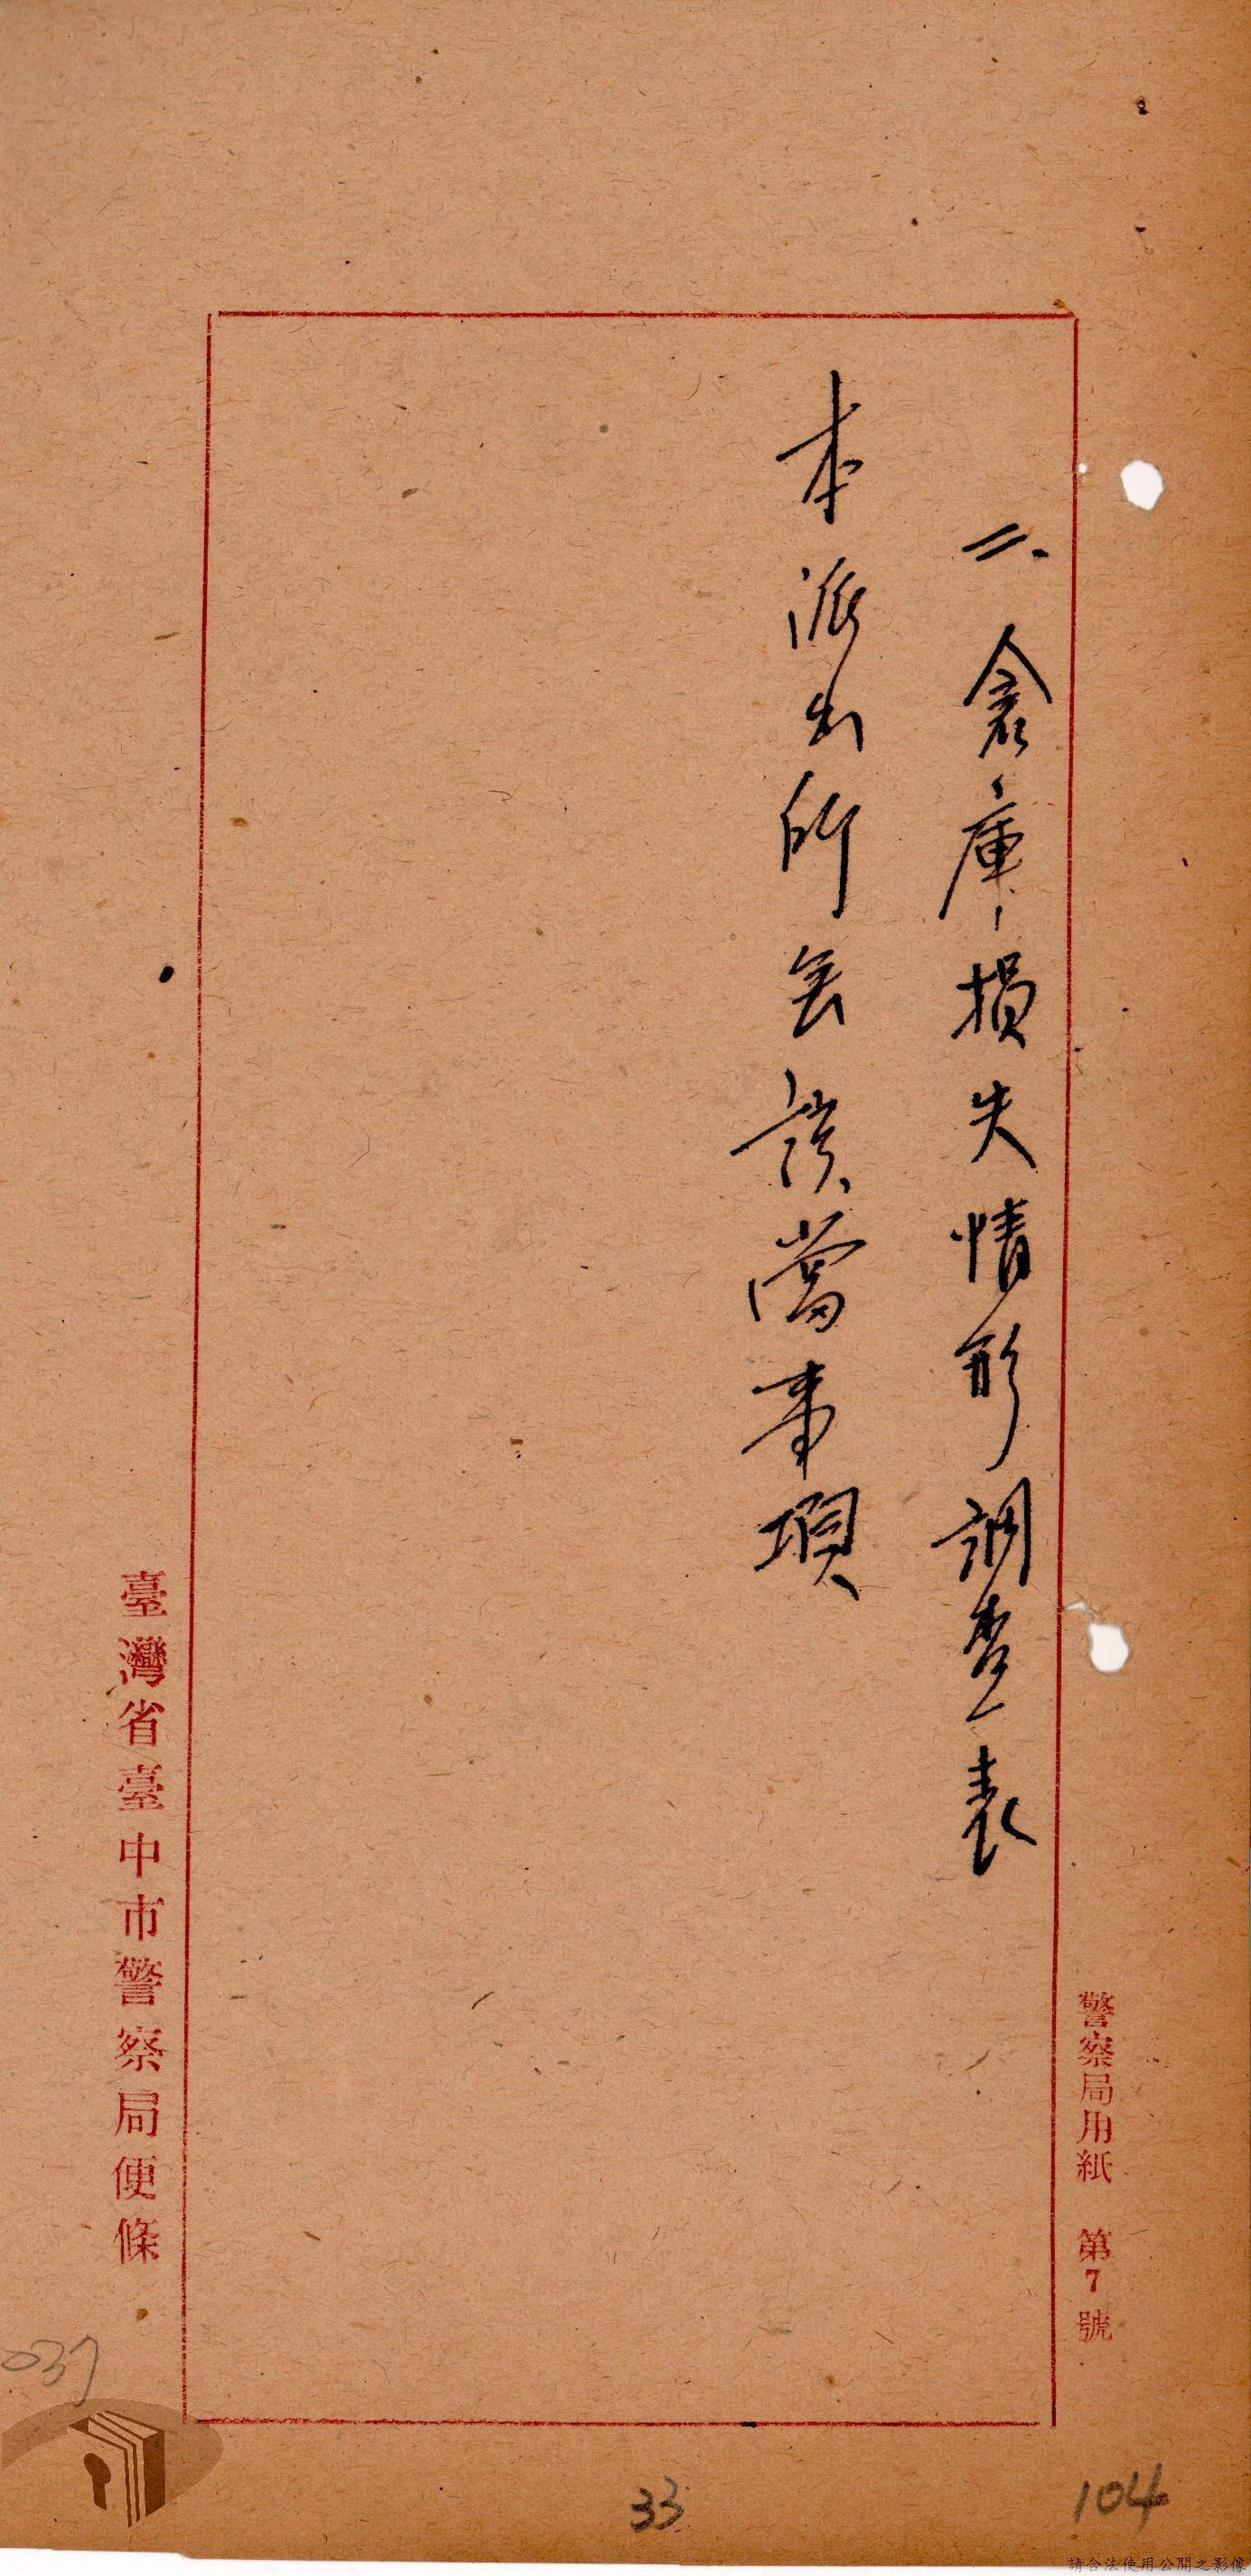 警察局用紙 第7號
二、倉庫損失情形調查表
本派出所無該當事項
臺灣省臺中市警察局便條
037
33
104
請合法使用公開之影像